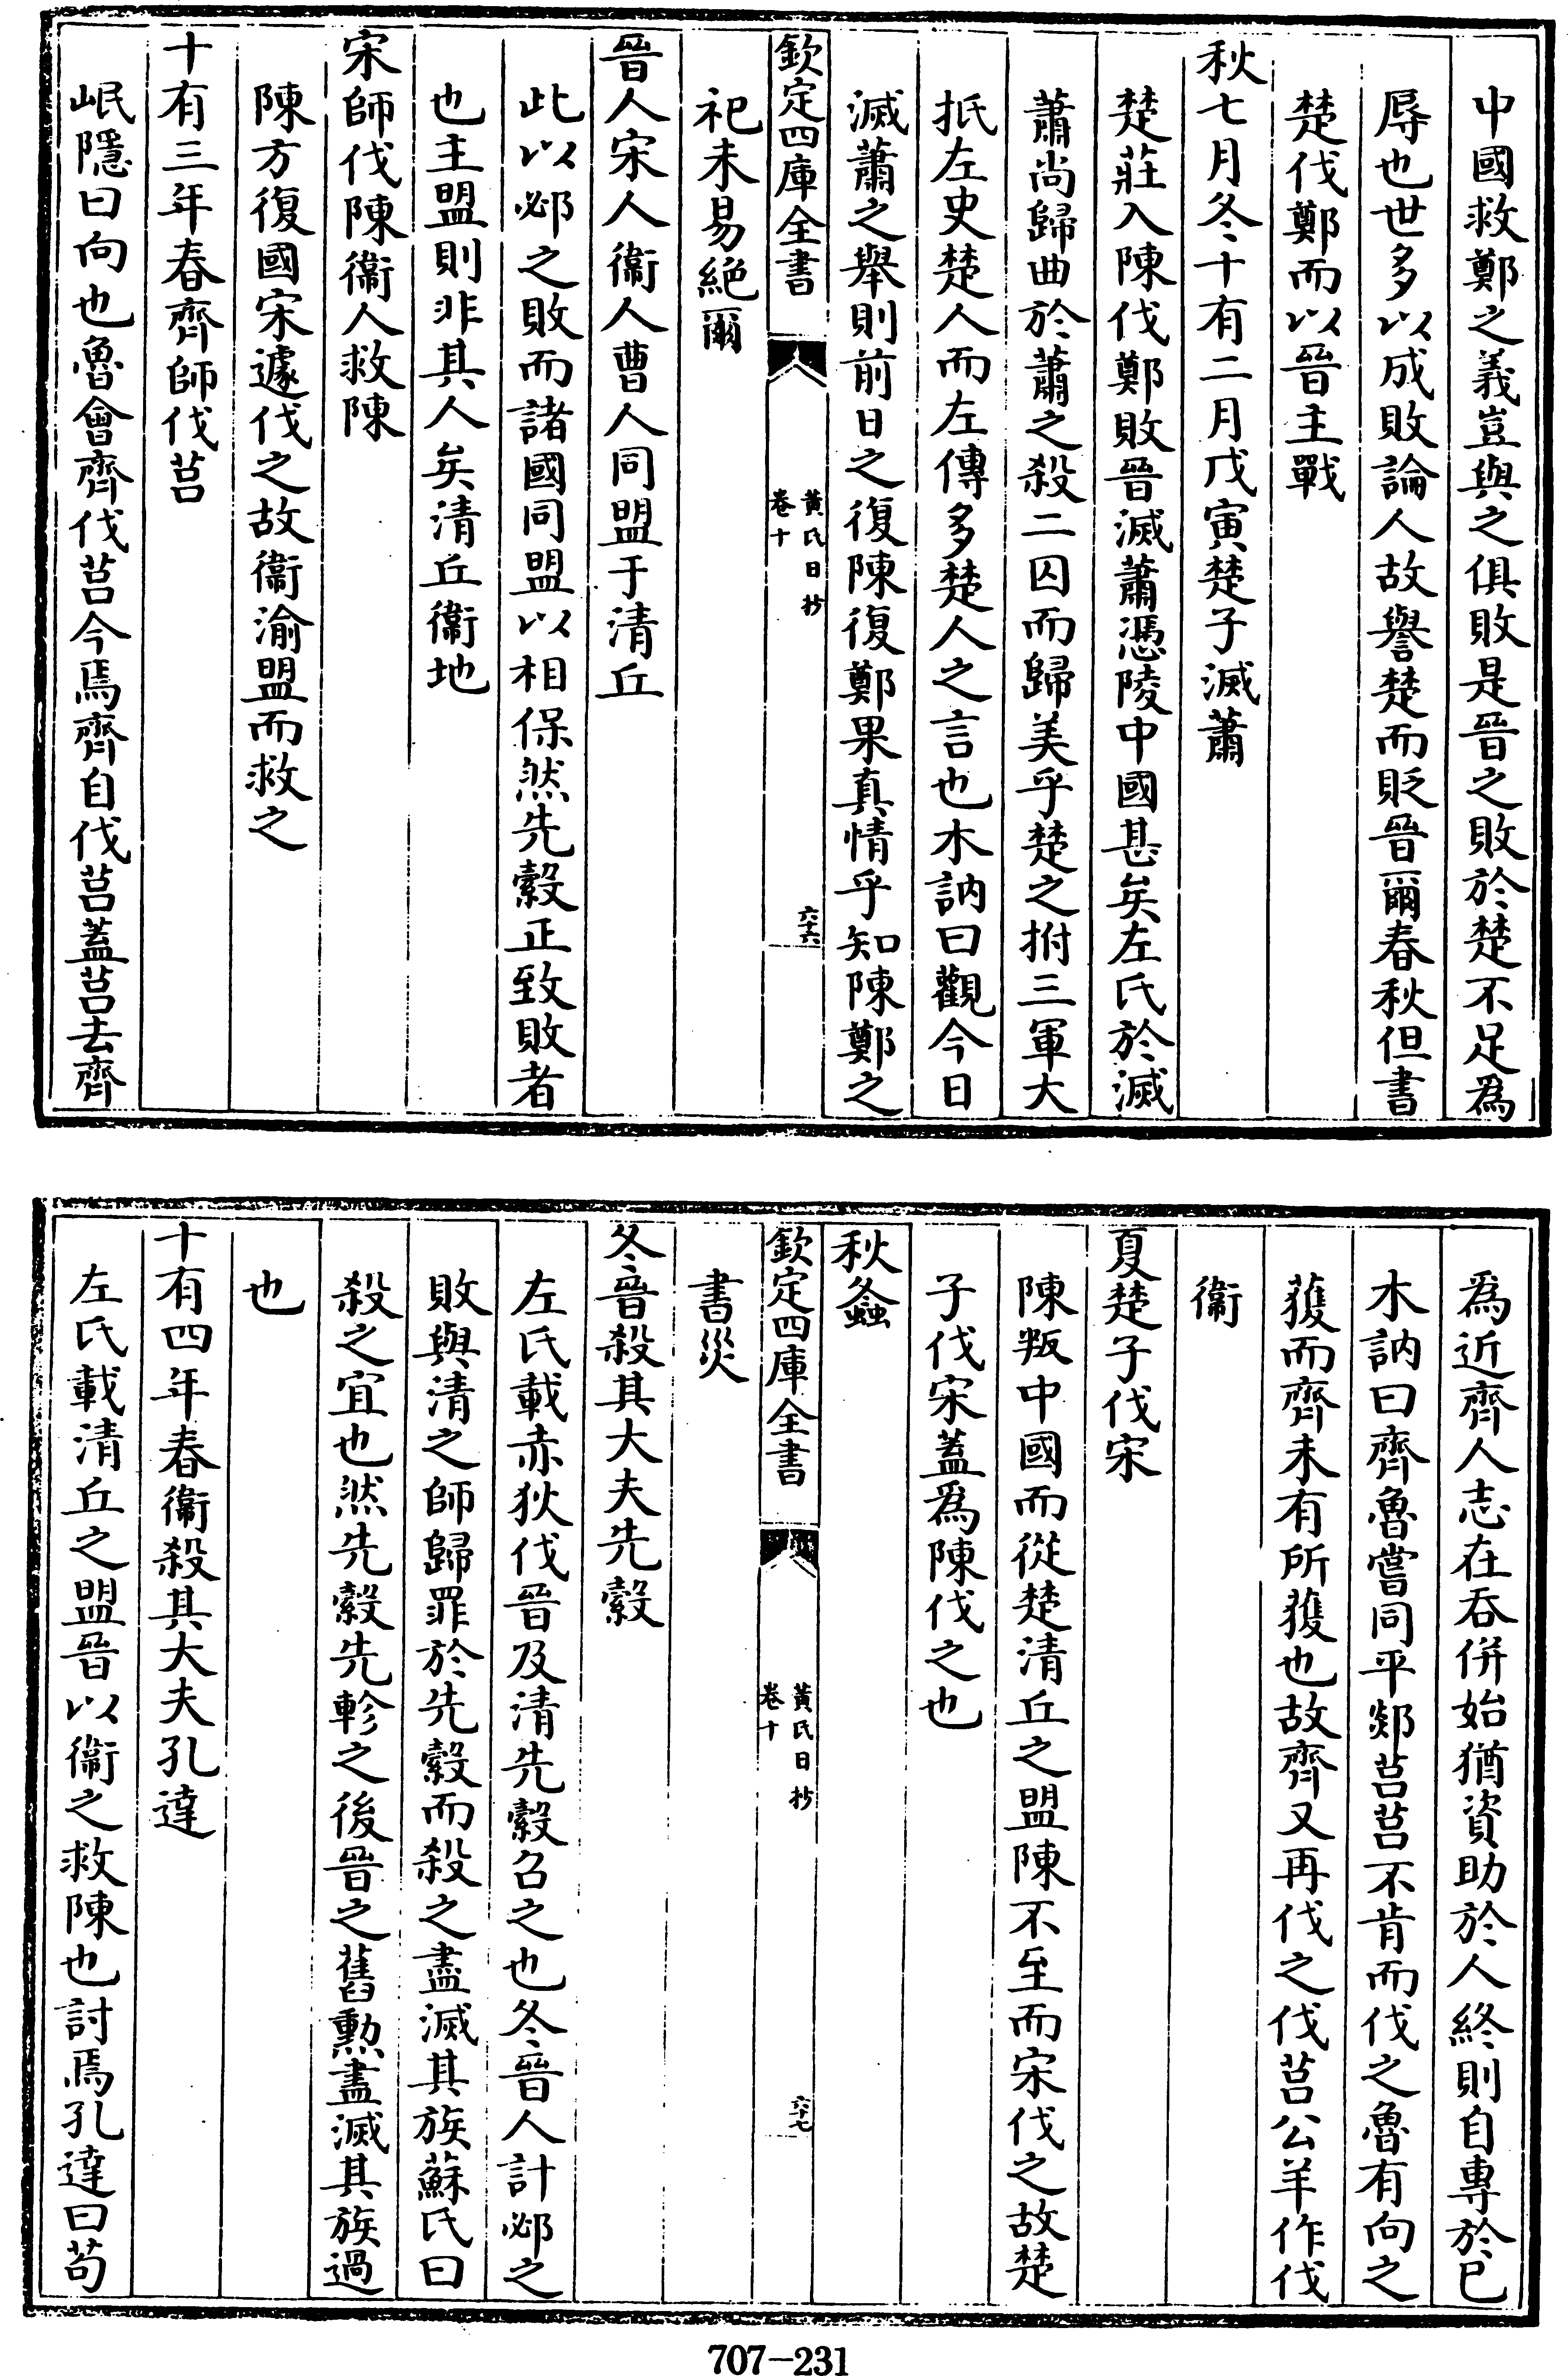 中國救鄭之義豈與之俱敗是晉之敗於楚不足為
辱也世多以成敗論人故譽楚而貶晉爾春秋但書
楚伐鄭而以晉主戰
秋七月冬十有二月戊寅楚子滅蕭
楚莊入陳伐鄭敗晉滅蕭憑陵中國甚矣左氏於滅
蕭尚歸曲於蕭之殺二囚而歸美乎楚之拊三軍大
抵左史楚人而左傳多楚人之言也木訥曰觀今日
滅蕭之舉則前日之復陳復鄭果真情乎知陳鄭之
欽定四庫全書
黃氏日抄
卷十
六十六
祀未易絕爾
晉人宋人衞人曹人同盟于清丘
此以邲之敗而諸國同盟以相保然先縠正致敗者
也主盟則非其人矣清丘衞地
宋師伐陳衞人救陳
陳方復國宋遽伐之故衞渝盟而救之
十有三年春齊師伐莒
岷隱曰向也魯會齊伐莒今焉齊自伐莒蓋莒去齊
為近齊人志在吞併始猶資助於人終則自專於已
木訥曰齊魯嘗同平郯莒莒不肯而伐之魯有向之
獲而齊未有所獲也故齊又再伐之伐莒公羊作伐
衞
夏楚子伐宋
陳叛中國而從楚清丘之盟陳不至而宋伐之故楚
子伐宋蓋為陳伐之也
秋螽
欽定四庫全書
黃氏日抄
卷十
六十七
書災
冬晉殺其大夫先縠
左氏載赤狄伐晉及清先縠召之也冬晉人計邲之
敗與清之師歸罪於先縠而殺之盡滅其族蘇氏曰
殺之宜也然先縠先軫之後晉之舊勲盡滅其族過
也
十有四年春衞殺其大夫孔達
左氏載清丘之盟晉以衞之救陳也討焉孔達曰苟
707-231